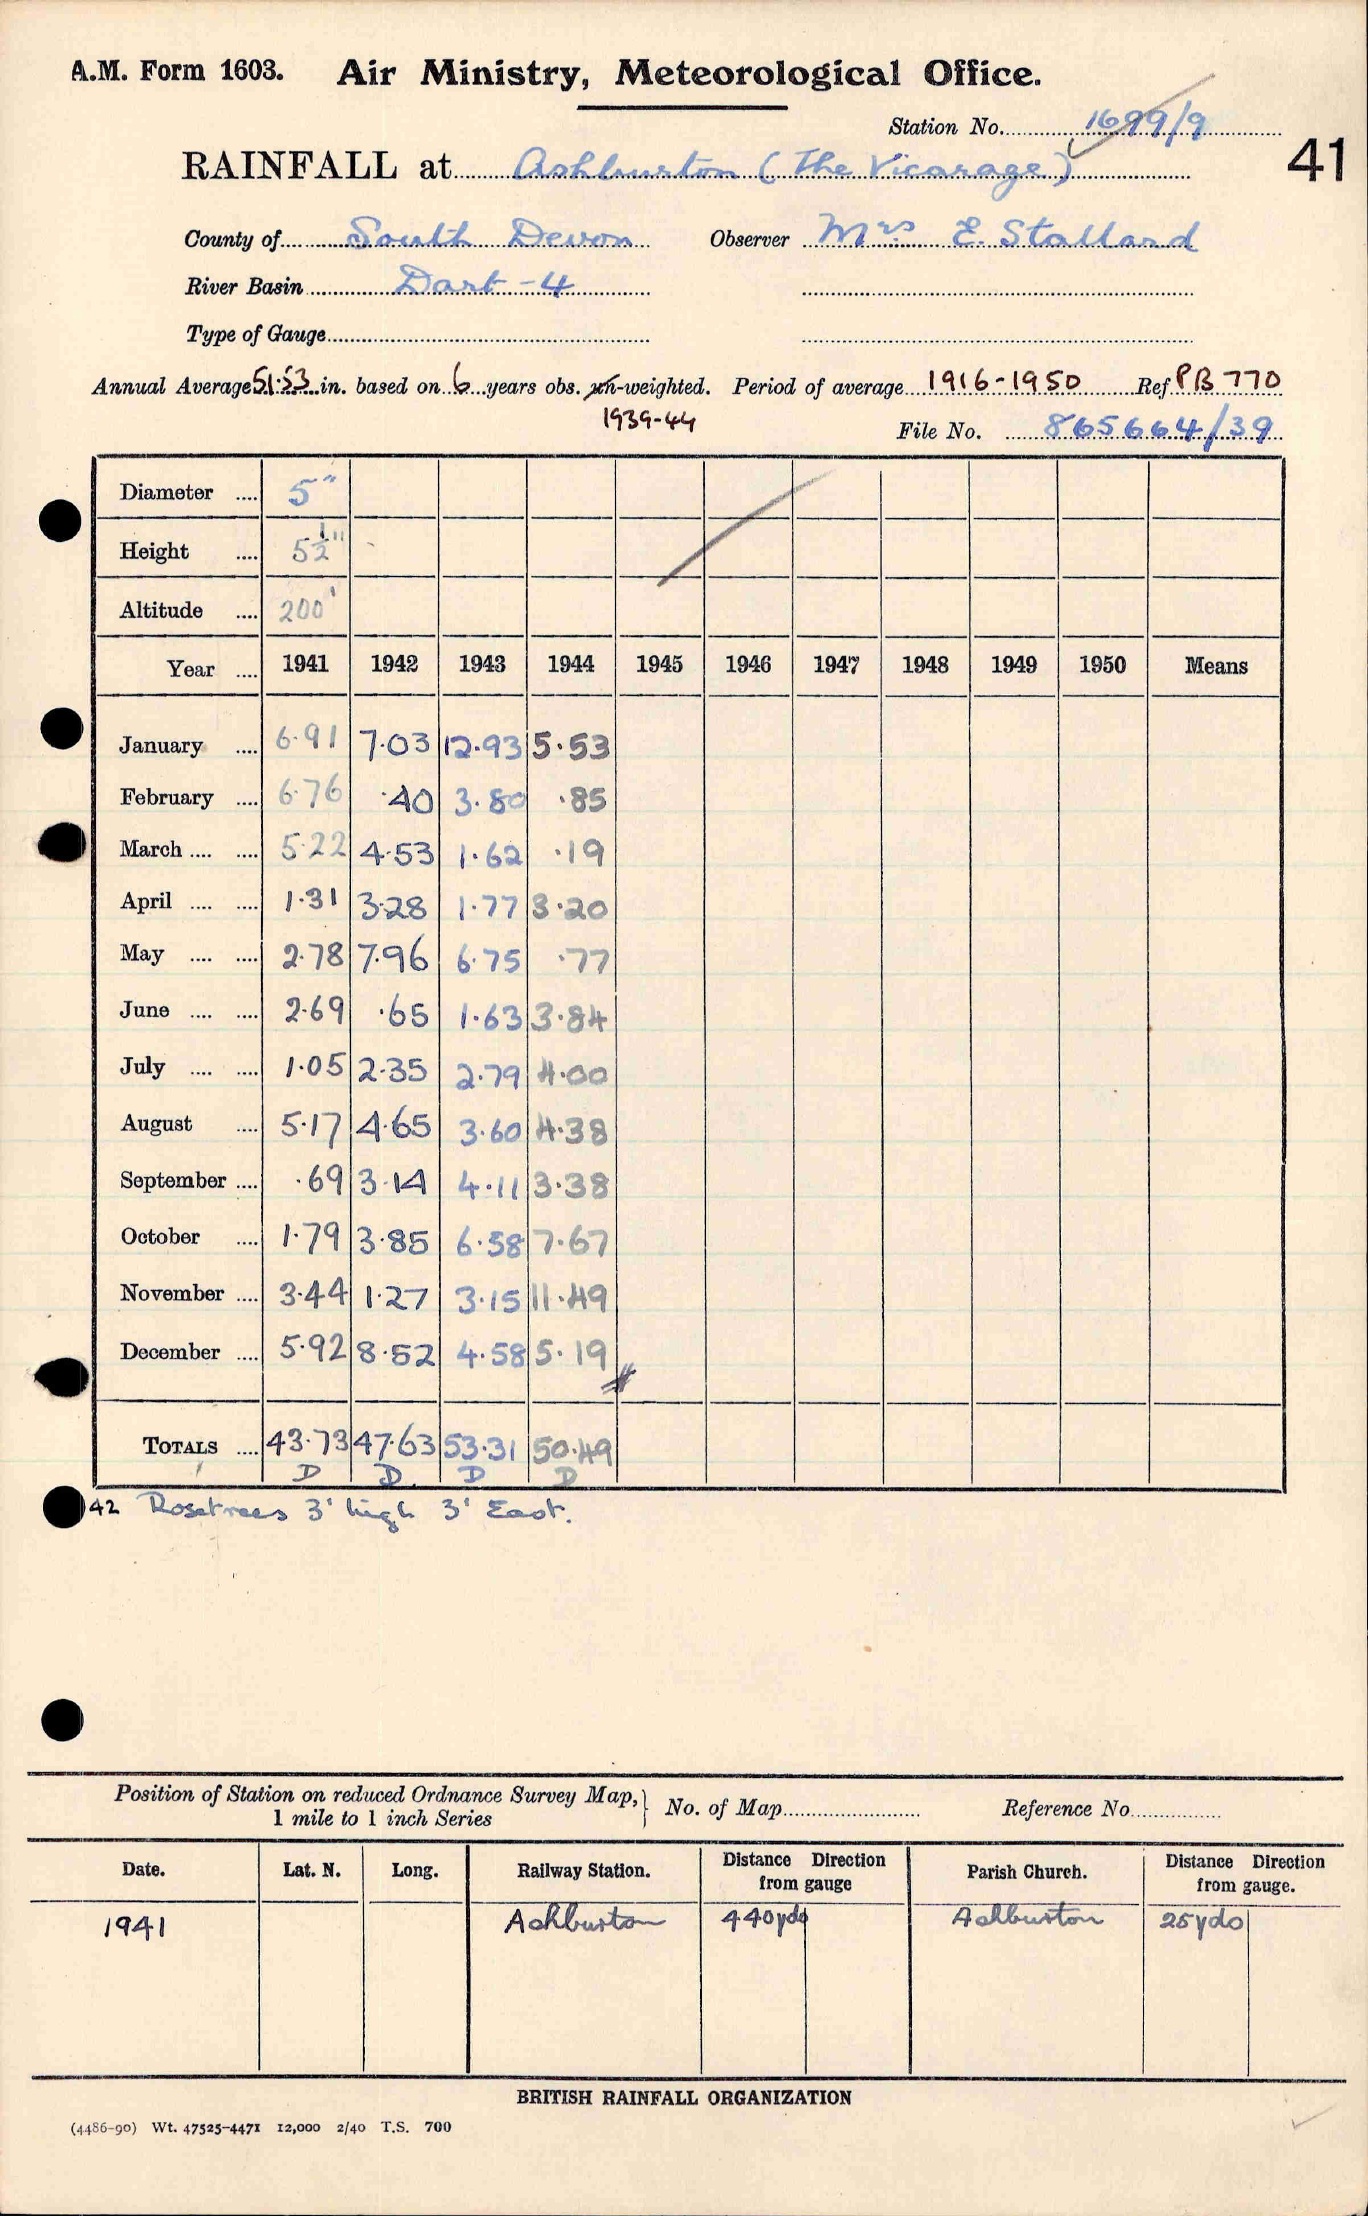 A.M. Form 1603. Air Ministry, Meteorological Office.
Station No. 1699/9
41
RAINFALL at Ashburton (The Vicarage)
County of South Devon Observer Mrs E. Stallard
River Basin Dart-4
Type of Gauge
Annual Average 51.53 in. based on 6 years obs. un-weighted. Period of average 1916-1950 Ref PB 770
1939-44
File No. 865664/39
Diameter .... 5"
Height .... 5½"
Altitude .... 200'
Year .... 1941 1942 1943 1944 1945 1946 1947 1948 1949 1950 Means
January .... 6.91 7.03 12.93 5.53
February .... 6.76 .40 3.80 .85
March .... .... 5.22 4.53 1.62 .19
April .... .... 1.31 3.28 1.77 3.20
May .... .... 2.78 7.96 6.75 .77
June .... .... 2.69 .65 1.63 3.84
July .... .... 1.05 2.35 2.79 4.00
August .... 5.17 4.65 3.60 4.38
September .... .69 3.14 4.11 3.38
October .... 1.79 3.85 6.58 7.67
November .... 3.44 1.27 3.15 11.49
December .... 5.92 8.52 4.58 5.19
TOTALS .... 43.73 47.63 53.31 50.49
D D D D
42 Rosetrees 3' high 3' East.
Position of Station on reduced Ordnance Survey Map, 1 mile to 1 inch Series } No. of Map Reference No.
Date. Lat. N. Long. Railway Station. Distance Direction from gauge Parish Church. Distance Direction from gauge.
1941 Ashburton 440yds Ashburton 25yds
BRITISH RAINFALL ORGANIZATION
(4486-90) Wt. 47525-4471 12,000 2/40 T.S. 700